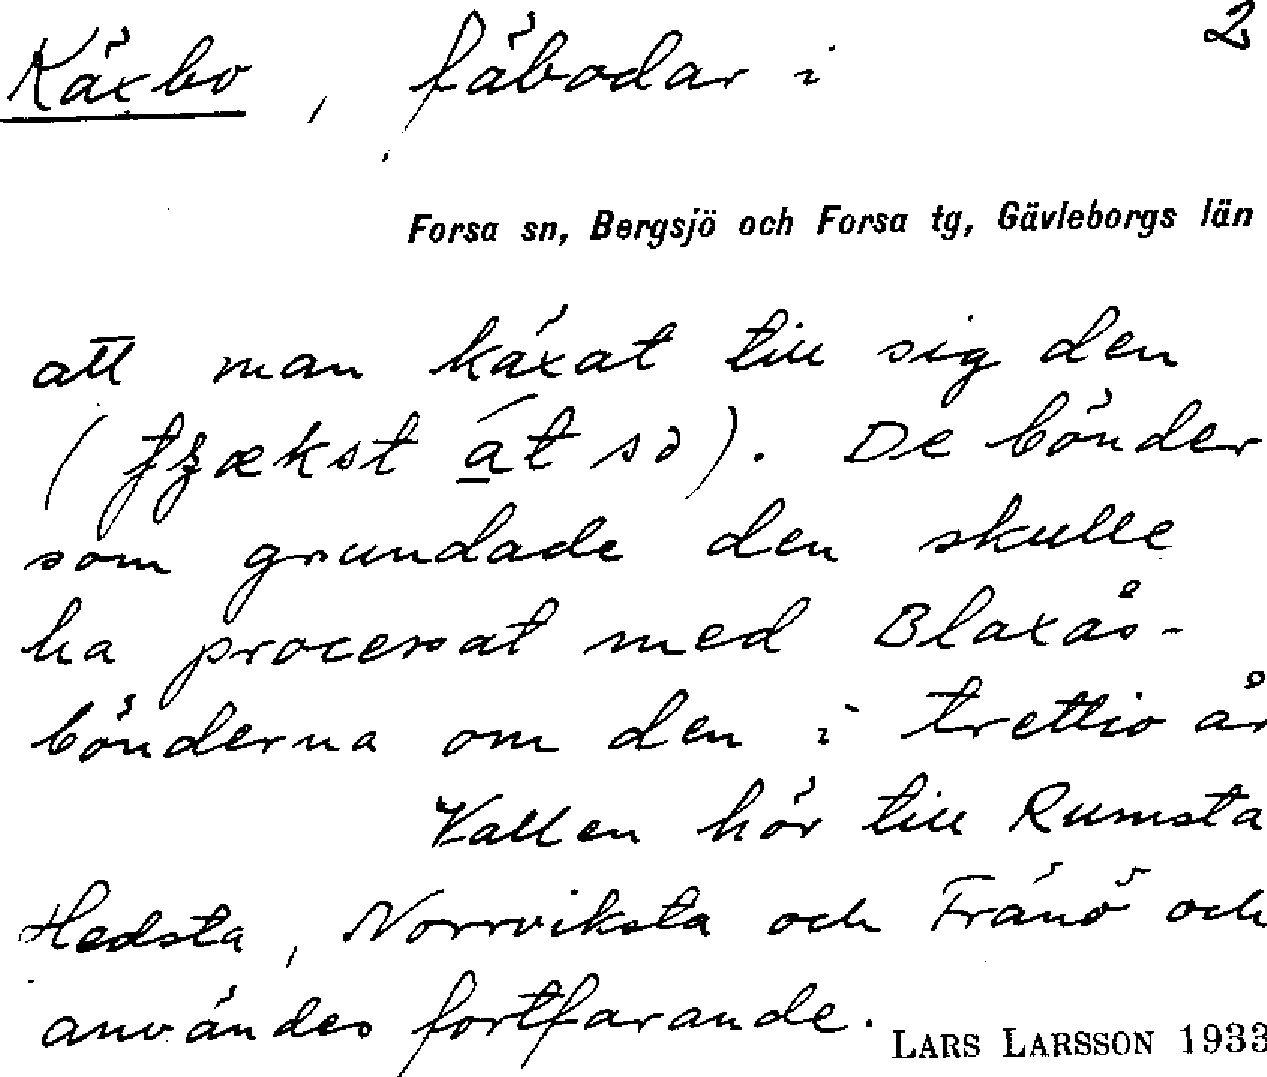 Käxbo, fäbodar i 2
Forsa sn, Bergsjö och Forsa tg, Gävleborgs län
att man käxat till sig den
( át sə). De bönder
som grundade den skulle
ha processat med Blaxås-
bönderna om den i trettio år
Vallen hör till Rumsta
Hedsta, Norrviksta och Fränö och
användes fortfarande.
LARS LARSSON 1933